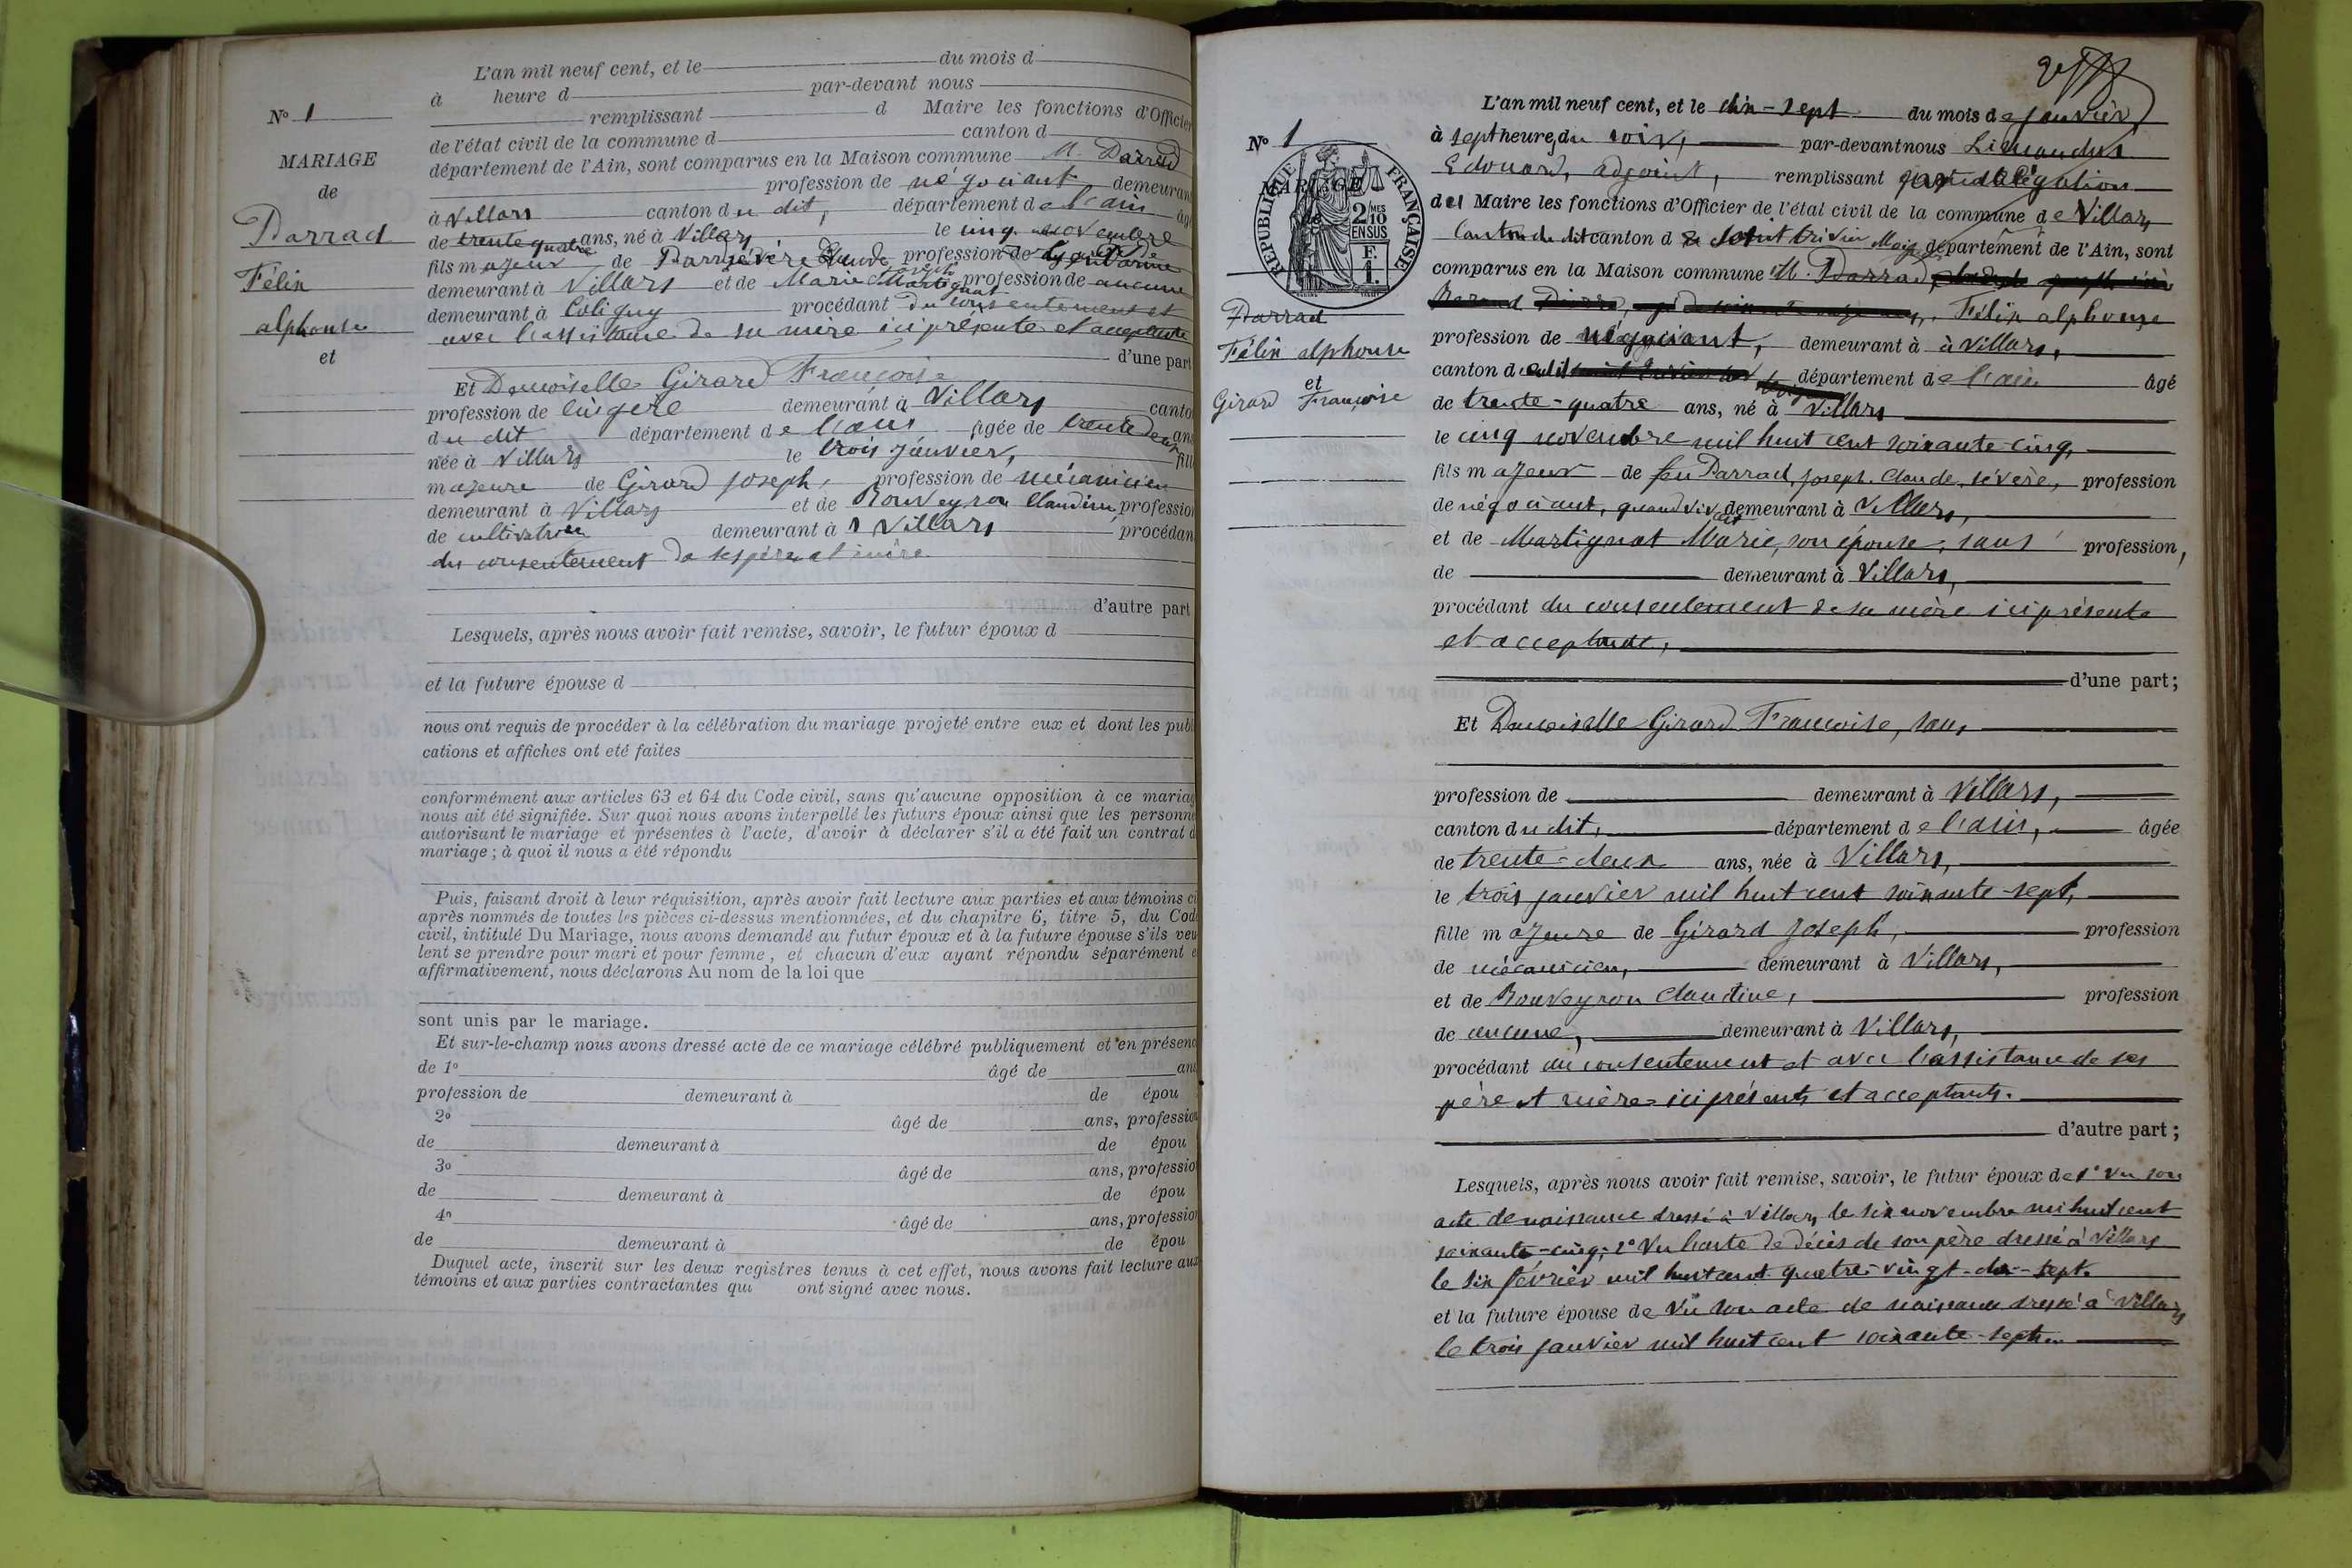 L'an mil neuf cent, et le du mois d
à heure d par-devant nous
remplissant d Maire les fonctions d'Officier
de l'état civil de la commune d canton d
département de l'Ain, sont comparus en la Maison commune M. Darrad
profession de négociant demeurant
à Villars canton du dit, département de l'ain âgé
de trente quatre ans, né à Villars le cinq novembre
fils majeur de Darrad profession de
demeurant à Villars et de Marie Martignat profession de aucune
demeurant à Coligny procédant du consentement et
avec l'assistance de sa mère ici présente et acceptante
d'une part
Et Demoiselle Girard Francoise
profession de lingère demeurant à Villars canto
du dit département de l'ain âgée de trente deux ans
née à Villars le trois janvier, fill
majeure de Girard Joseph, profession de mécanicien
demeurant à Villars et de Rouveyron Claudine profession
de cultivatrice demeurant à Villars procédan
du consentement de ses père et mère
d'autre part
Lesquels, après nous avoir fait remise, savoir, le futur époux d
et la future épouse d
nous ont requis de procéder à la célébration du mariage projeté entre eux et dont les publi
cations et affiches ont eté faites
conformément aux articles 63 et 64 du Code civil, sans qu'aucune opposition à ce mariag
nous ait été signifiée. Sur quoi nous avons interpellé les futurs époux ainsi que les personne
autorisant le mariage et présentes à l'acte, d'avoir à déclarer s'il a été fait un contrat d
mariage ; à quoi il nous a été répondu
Puis, faisant droit à leur réquisition, après avoir fait lecture aux parties et aux témoins ci
après nommés de toutes les pièces ci-dessus mentionnées, et du chapitre 6, titre 5, du Code
civil, intitulé Du Mariage, nous avons demandé au futur époux et à la future épouse s'ils veu
lent se prendre pour mari et pour femme, et chacun d'eux ayant répondu séparément e
affirmativement, nous déclarons Au nom de la loi que
sont unis par le mariage.
Et sur-le-champ nous avons dressé acte de ce mariage célébré publiquement et en présenc
de 1º âgé de ans
profession de demeurant à de épou
2º âgé de ans, profession
de demeurant à de épou
3º âgé de ans, profession
de demeurant à de épou
4º âgé de ans, profession
de demeurant à de épou
Duquel acte, inscrit sur les deux registres tenus à cet effet, nous avons fait lecture aux
témoins et aux parties contractantes qui ont signé avec nous.
Nº 1
MARIAGE
de
Darrad
Félix
alphonse
et
Nº 1
MARIAGE
RÉPUBLIQUE FRANÇAISE
2/10 MES
EN SUS
F.
1.
Darrad
Félix alphonse
et
Girard Françoise
L'an mil neuf cent, et le dix-sept du mois de janvier
à sept heures du soir, par-devant nous
Edouard, adjoint, remplissant par délégation
du Maire les fonctions d'Officier de l'état civil de la commune de Villars
Canton du dit canton d département de l'Ain, sont
comparus en la Maison commune M. Darrad,
Félix alphonse
profession de négociant, demeurant à à Villars,
canton du dit département de l'ain âgé
de trente-quatre ans, né à Villars
le cinq novembre mil huit cent soixante-cinq,
fils majeur de feu Darrad, joseph, Claude, sévère, profession
de négociant, quand vivait demeurant à Villars,
et de Martignat Marie, son épouse, sans profession,
de demeurant à Villars,
procédant du consentement de sa mère ici présente
et acceptante,
d'une part ;
Et Demoiselle Girard Francoise, sans
profession de demeurant à Villars,
canton du dit, département de l'ain, âgée
de trente-deux ans, née à Villars,
le trois janvier mil huit cent soixante-sept,
fille majeure de Girard Joseph, profession
de mécanicien, demeurant à Villars,
et de Rouveyron Claudine, profession
de aucune, demeurant à Villars,
procédant du consentement et avec l'assistance de ses
père et mère ici présents et acceptants.
d'autre part ;
Lesquels, après nous avoir fait remise, savoir, le futur époux de 1º Vu son
acte de naissance dressé à Villars le six novembre mil huit cent
soixante-cinq ; 2º Vu l'acte de décès de son père dressé à Villars
le six février mil huit cent quatre vingt-dix-sept.
et la future épouse de Vu son acte de naissance dressé à Villars
le trois janvier mil huit cent soixante-sept